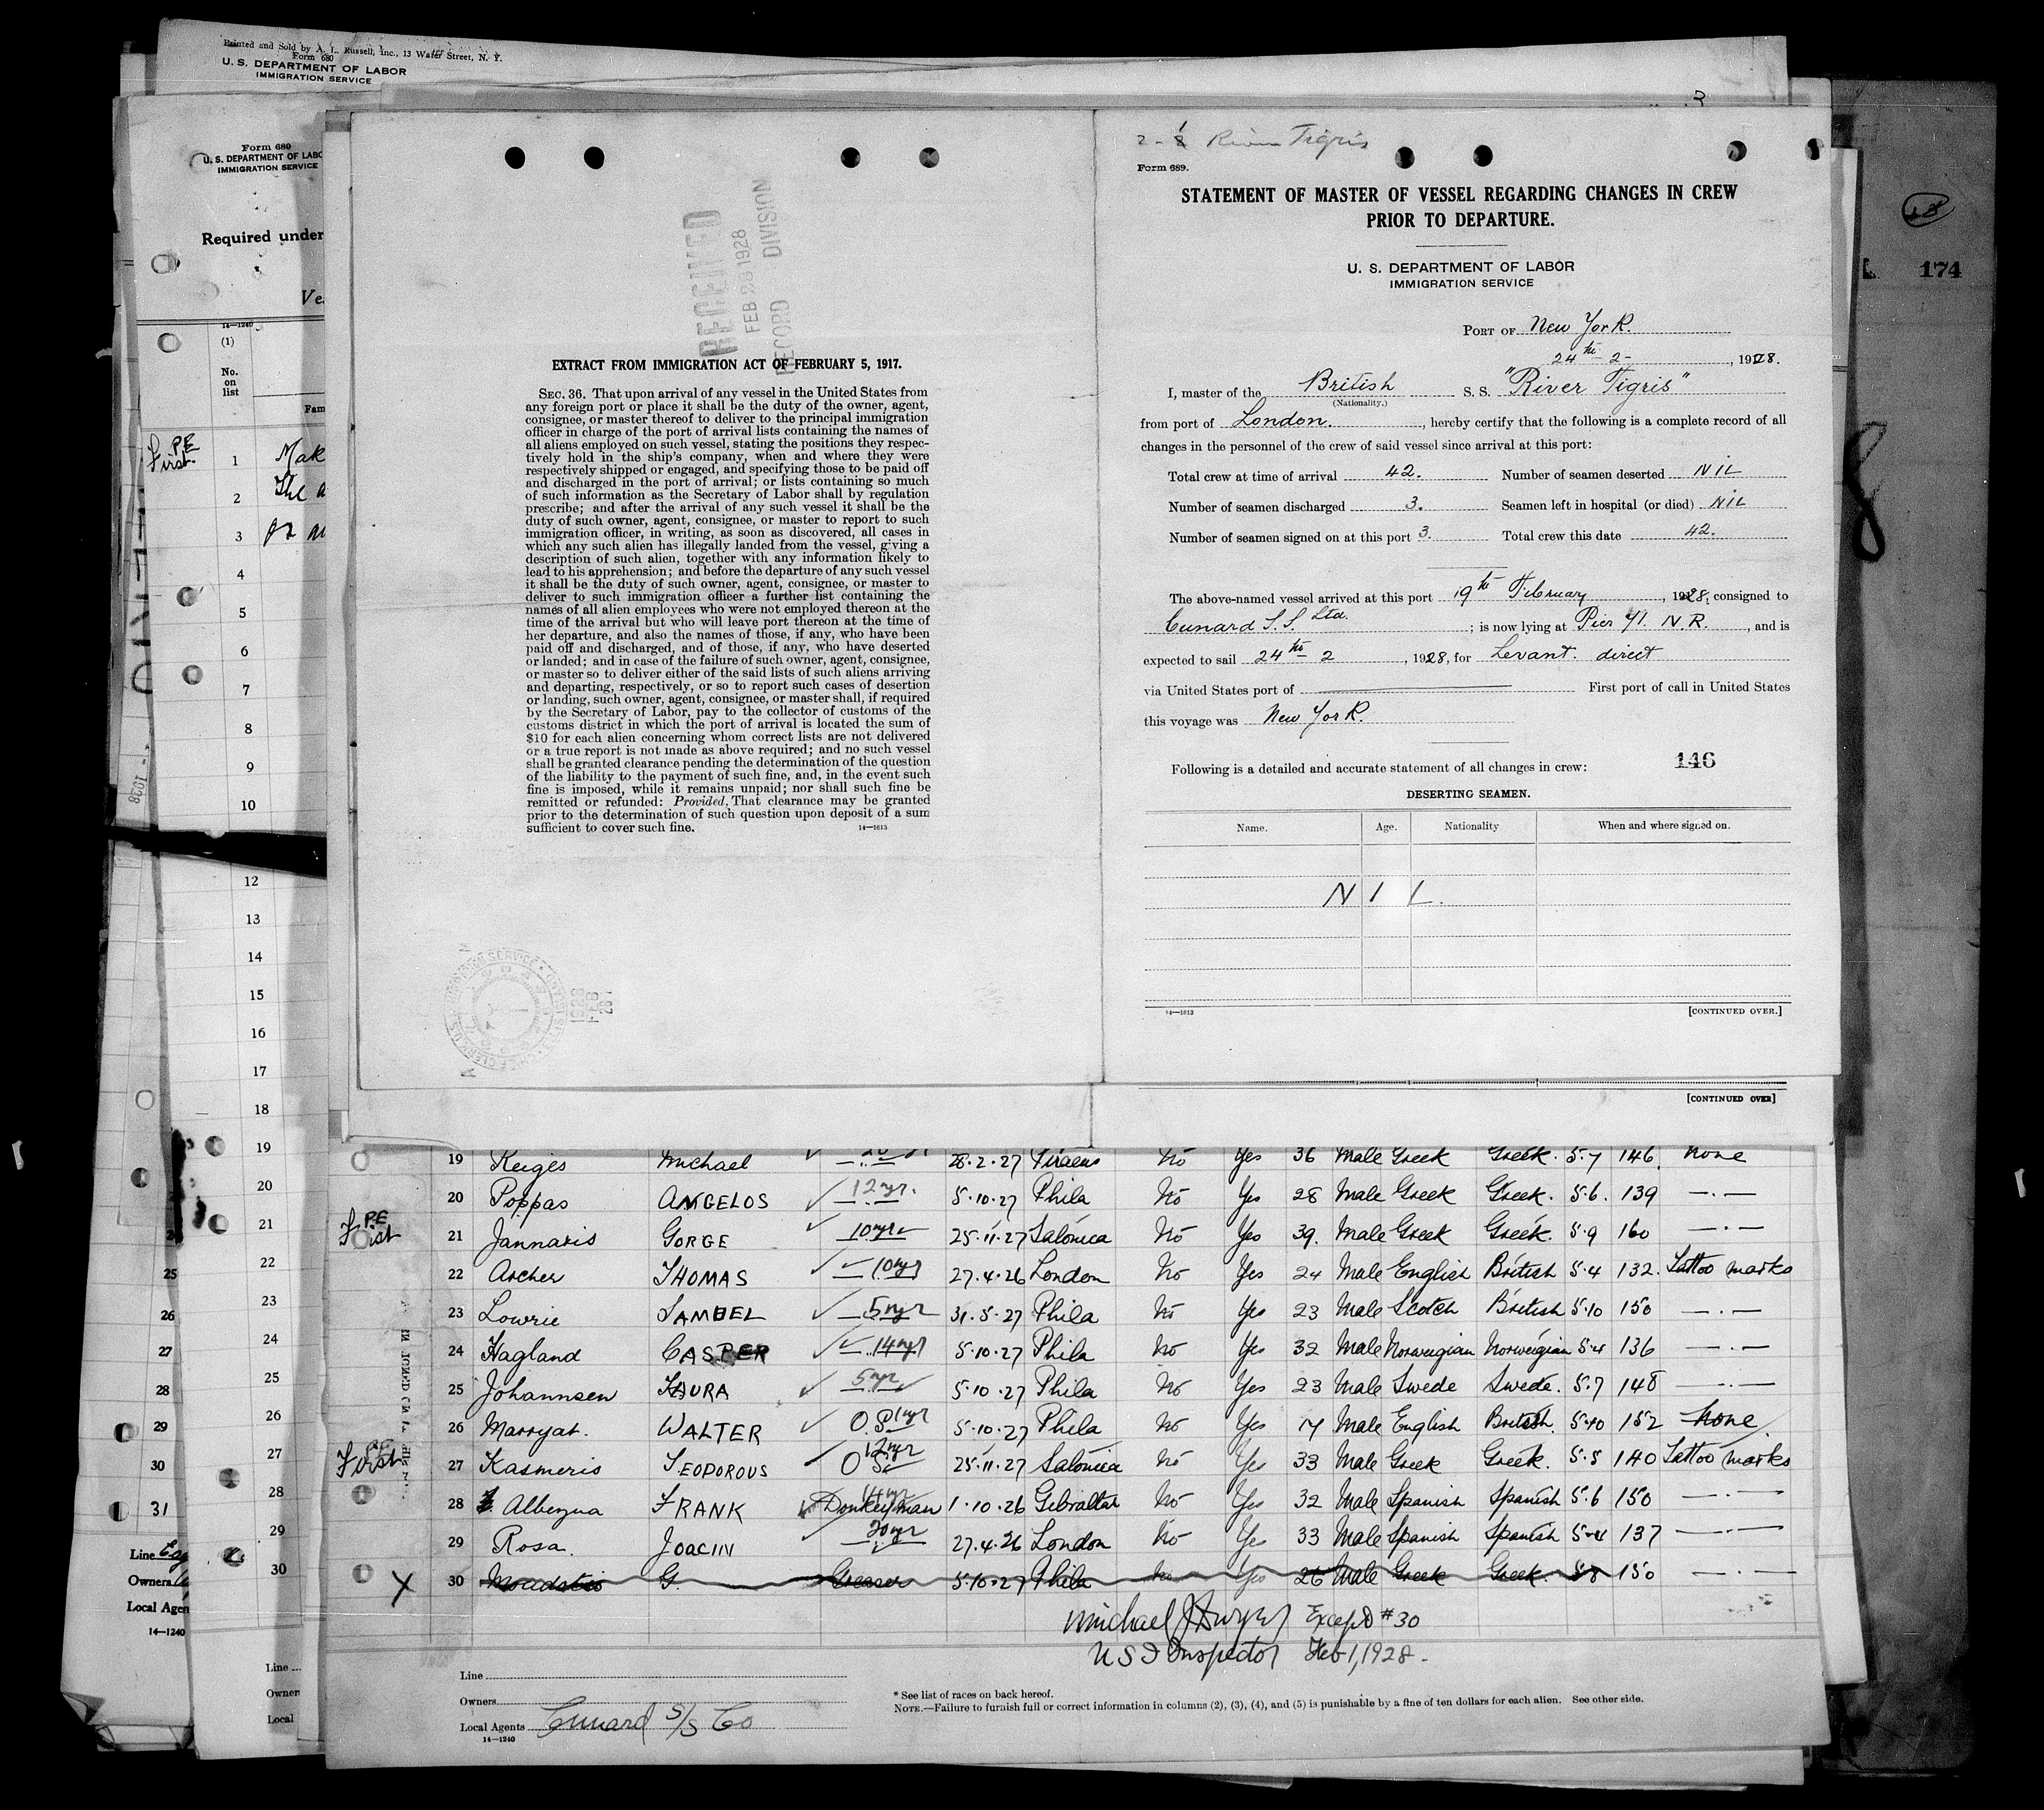 Printed and Sold by A. L. Russell, Inc., 13 Water Street, N. Y.
Form 680
U. S. DEPARTMENT OF LABOR
IMMIGRATION SERVICE
3
Form 680
U. S. DEPARTMENT OF LABO
IMMIGRATION SERVICE
Required under
Ve
14—1240
(1)
No.
on
list
Fam
First PE
1 Mak
2 The a
3
4
5
6
7
8
9
10
12
13
14
15
16
17
18
19
20
21
22
23
24
25
26
27
28
29
30
25
26
27
28
29
30
31
Line
Owners
Local Agen
14—1240
Line
Owners
Local
174
RECEIVED
FEB 28 1928
RECORD DIVISION
EXTRACT FROM IMMIGRATION ACT OF FEBRUARY 5, 1917.
SEC. 36. That upon arrival of any vessel in the United States from
any foreign port or place it shall be the duty of the owner, agent,
consignee, or master thereof to deliver to the principal immigration
officer in charge of the port of arrival lists containing the names of
all aliens employed on such vessel, stating the positions they respec-
tively hold in the ship's company, when and where they were
respectively shipped or engaged, and specifying those to be paid off
and discharged in the port of arrival; or lists containing so much
of such information as the Secretary of Labor shall by regulation
prescribe; and after the arrival of any such vessel it shall be the
duty of such owner, agent, consignee, or master to report to such
immigration officer, in writing, as soon as discovered, all cases in
which any such alien has illegally landed from the vessel, giving a
description of such alien, together with any information likely to
lead to his apprehension; and before the departure of any such vessel
it shall be the duty of such owner, agent, consignee, or master to
deliver to such immigration officer a further list containing the
names of all alien employees who were not employed thereon at the
time of the arrival but who will leave port thereon at the time of
her departure, and also the names of those, if any, who have been
paid off and discharged, and of those, if any, who have deserted
or landed; and in case of the failure of such owner, agent, consignee,
or master so to deliver either of the said lists of such aliens arriving
and departing, respectively, or so to report such cases of desertion
or landing, such owner, agent, consignee, or master shall, if required
by the Secretary of Labor, pay to the collector of customs of the
customs district in which the port of arrival is located the sum of
$10 for each alien concerning whom correct lists are not delivered
or a true report is not made as above required; and no such vessel
shall be granted clearance pending the determination of the question
of the liability to the payment of such fine, and, in the event such
fine is imposed, while it remains unpaid; nor shall such fine be
remitted or refunded: Provided, That clearance may be granted
prior to the determination of such question upon deposit of a sum
sufficient to cover such fine.
14—1613
1928
FEB
28
River Tigris
Form 689.
STATEMENT OF MASTER OF VESSEL REGARDING CHANGES IN CREW
PRIOR TO DEPARTURE.
U. S. DEPARTMENT OF LABOR
IMMIGRATION SERVICE
PORT OF New York.
24th 2 , 1928.
I, master of the British S. S. "River Tigris"
(Nationality.)
from port of London. , hereby certify that the following is a complete record of all
changes in the personnel of the crew of said vessel since arrival at this port:
Total crew at time of arrival 42. Number of seamen deserted NIL
Number of seamen discharged 3. Seamen left in hospital (or died) NIL
Number of seamen signed on at this port 3. Total crew this date 42.
The above-named vessel arrived at this port 19th February , 1928, consigned to
Cunard S.S. Ltd. ; is now lying at Pier 41. N.R. , and is
expected to sail 24th 2 , 1928, for Levant. direct
via United States port of First port of call in United States
this voyage was New York.
Following is a detailed and accurate statement of all changes in crew: 146
DESERTING SEAMEN.
Name. Age. Nationality When and where signed on.
NIL.
14—1613 [CONTINUED OVER.]
[CONTINUED OVER]
19 Reiges Michael 28.2.27 Piraeus No Yes 36 Male Greek Greek. 5.7 146. None
20 Poppas ANGELOS 12 yr. 5.10.27 Phila No Yes 28 Male Greek Greek. 5.6. 139 —.—
First PE 21 Jannaris GORGE 10 yr 25.11.27 Salonica No Yes 39. Male Greek Greek. 5.9 160 —.—
22 Archer THOMAS 10 yr 27.4.26 London No Yes 24 Male English British 5.4 132. Tattoo marks
23 Lowrie SAMUEL 5 yr 31.5.27 Phila No Yes 23 Male Scotch British 5.10 150 —.—
24 Hagland CASPER 14 yr 5.10.27 Phila No Yes 32 Male Norweigian Norweigian 5.4 136 —.—
25 Johannsen 5 yr 5.10.27 Phila No Yes 23 Male Swede Swede. 5.7 148 —.—
26 Marryat. WALTER O.S. 1 yr 5.10.27 Phila No Yes 17 Male English British. 5.10 152 None
First PE 27 Kasmeris TEODOROUS O.S. 12 yr 25.11.27 Salonica No Yes 33 Male Greek Greek. 5.5 140 Tattoo marks
28 Albegna FRANK Donkeyman 14 yr 1.10.26 Gibraltar No Yes 32 Male Spanish Spanish 5.6 150 —.—
29 Rosa. JOACIN 20 yr 27.4.26 London No Yes 33 Male Spanish Spanish 5.4 137 —.—
X 30 G. Greaser 5.10.27 Phila No Yes 26 Male Greek Greek. 5.8 150 —.—
Michael J Dwyer Except #30
U S I Inspector Feb 1, 1928.
Line
Owners
Local Agents Cunard S/S Co
14—1240
* See list of races on back hereof.
NOTE.—Failure to furnish full or correct information in columns (2), (3), (4), and (5) is punishable by a fine of ten dollars for each alien. See other side.